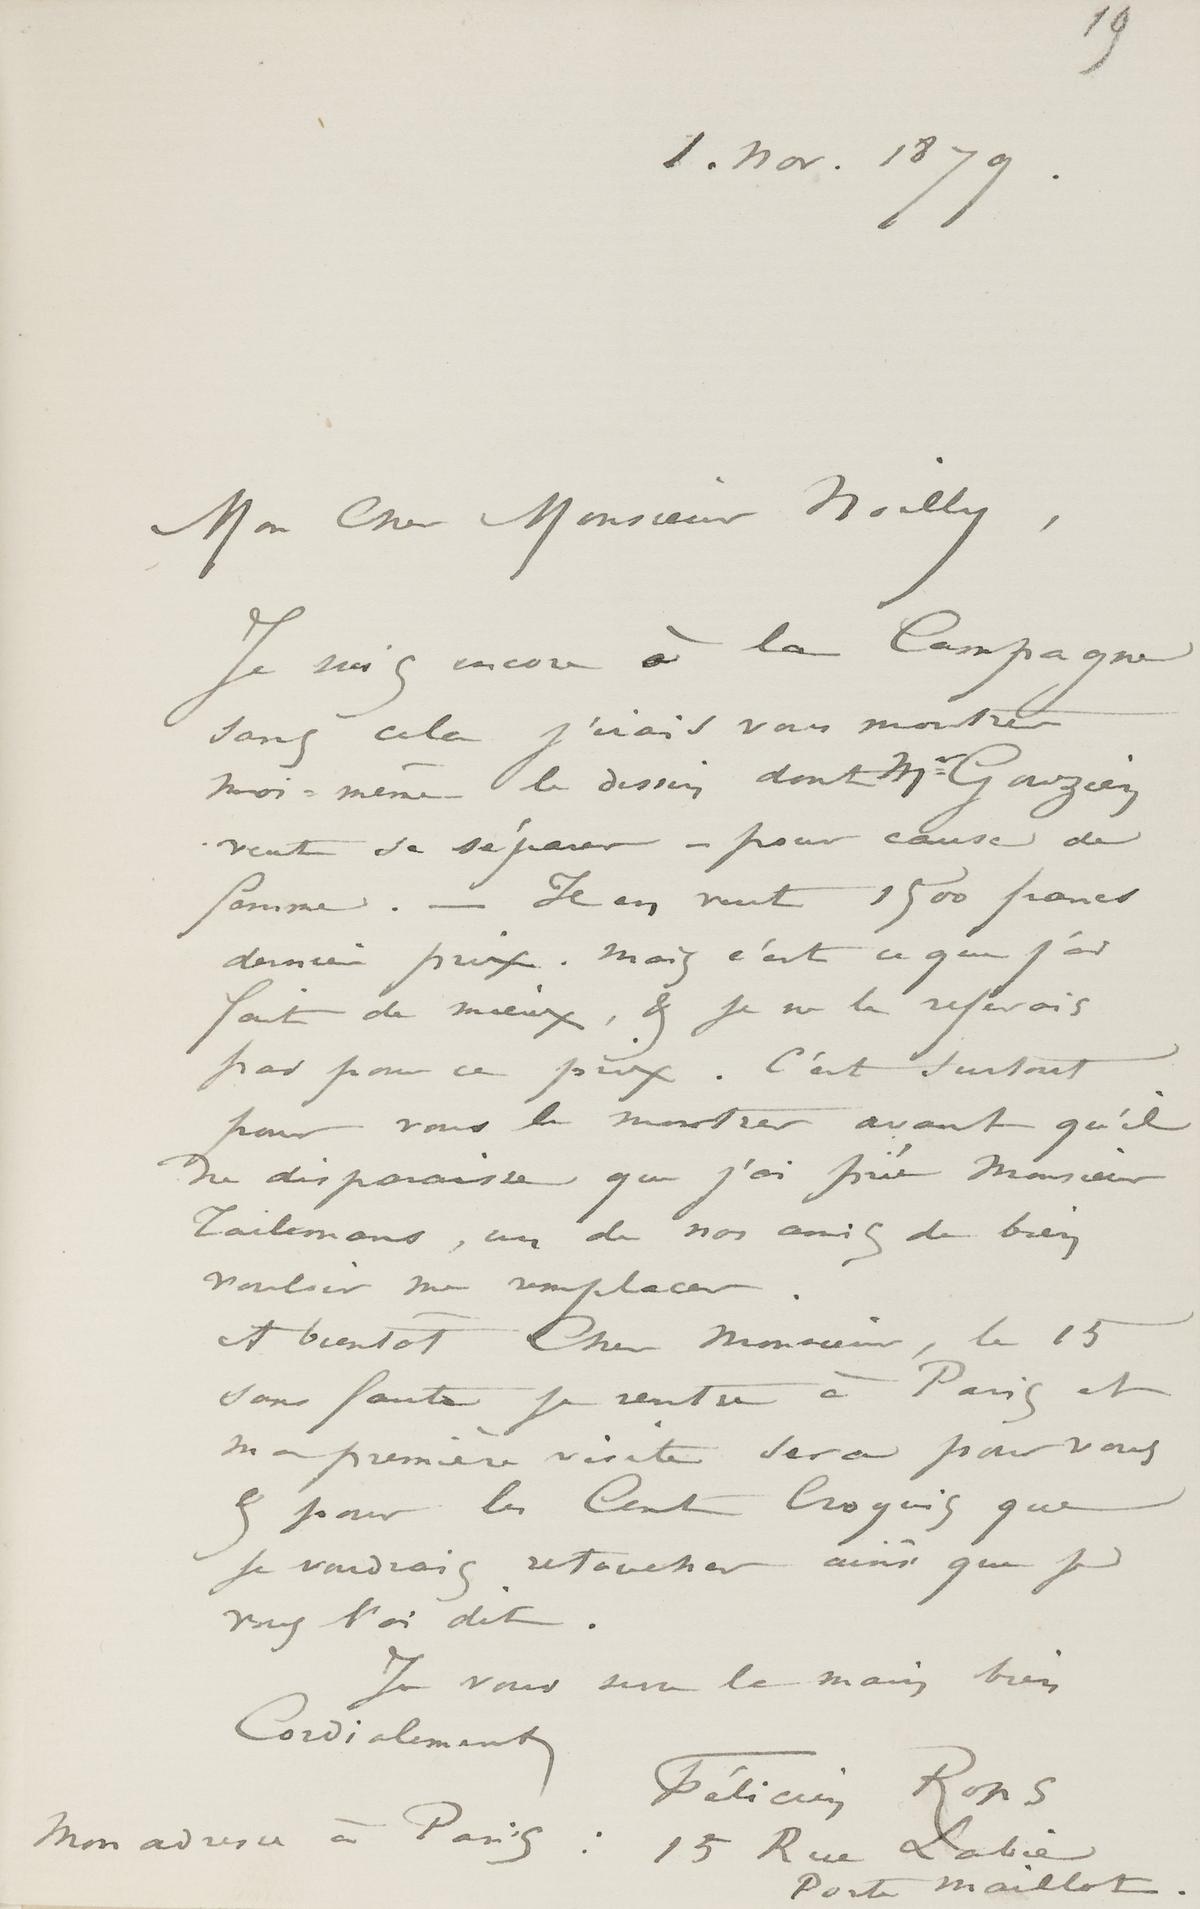 19
1. Nov. 1879.
Mon Cher Monsieur Noilly,
Je suis encore à la Campagne
sans cela j'irais vous montrer
moi-même le dessin dont Mr Gouzien
veut se séparer – pour cause de
femme. — Il en veut 1500 francs
dernier prix. Mais c'est ce que j'ai
fait de mieux, & je ne le referais
pas pour ce prix. C'est surtout
pour vous le montrer avant qu'il
ne disparaisse que j'ai prié Monsieur
Tailemans, un de nos amis de bien
vouloir me remplacer.
A bientôt Cher Monsieur, le 15
sans faute je rentre à Paris et
ma première visite sera pour vous
& pour les Cent Croquis que
je voudrais retoucher ainsi que je
vous l'ai dit.
Je vous serre la main bien
Cordialement
Félicien Rops
Mon adresse à Paris : 15 Rue Labie
Porte Maillot.